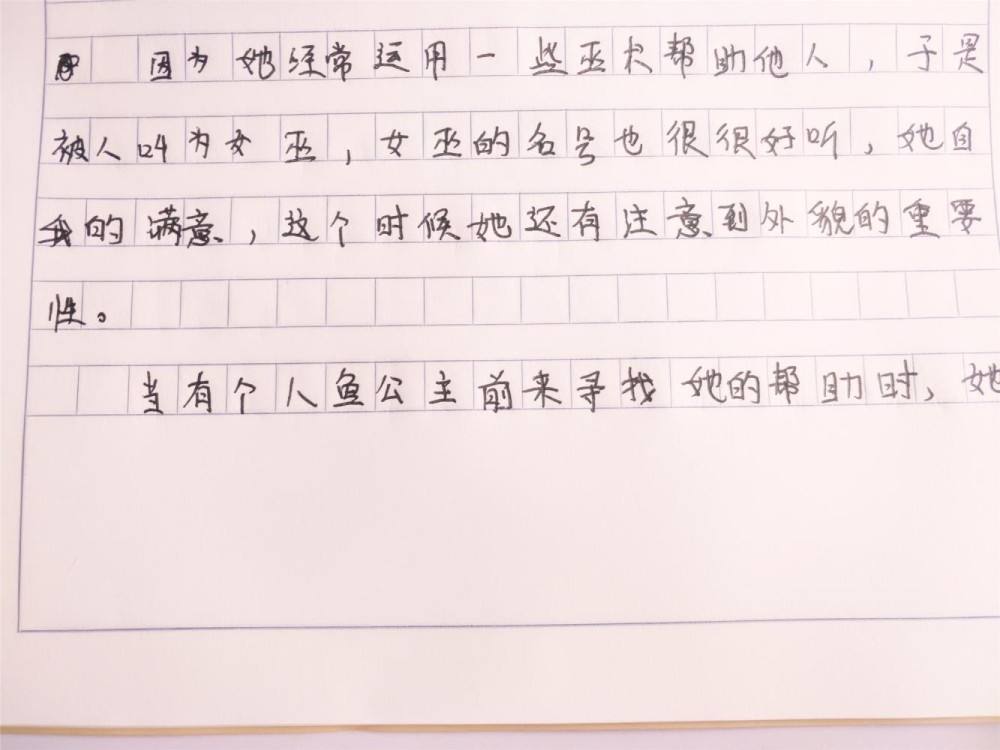 因为她经常运用一些巫术帮助他人，于是
被人叫为女巫，女巫的名号也很很好听，她自
我的满意，这个时候她还有注意到外貌的重要
性。
当有个人鱼公主前来寻找她的帮助时，她